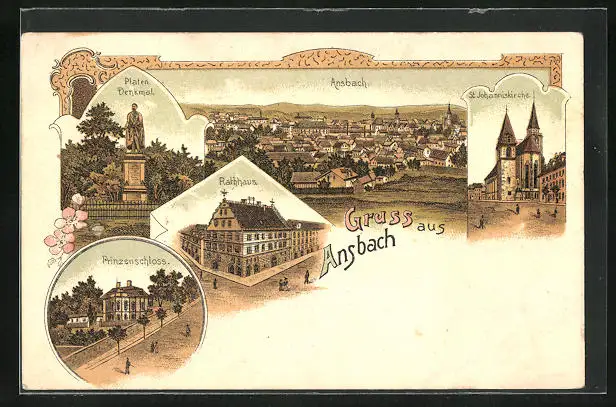 Platen
Denkmal.
Ansbach.
St. Johanniskirche.
Rathhaus.
Gruss aus
Ansbach
Prinzenschloss.